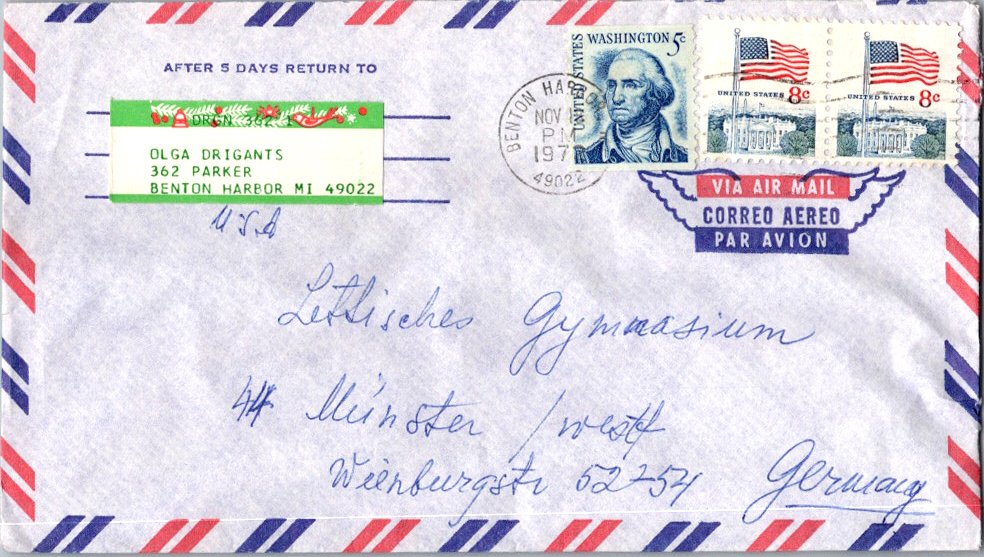 AFTER 5 DAYS RETURN TO
DRGN 362 1
OLGA DRIGANTS
362 PARKER
BENTON HARBOR MI 49022
U.S.A
BENTON HARBOR
NOV
PM
197
49022
UNITED STATES
WASHINGTON 5c
UNITED STATES 8c
UNITED STATES 8c
VIA AIR MAIL
CORREO AEREO
PAR AVION
Lettisches Gymnasium
44 Münster /westf
Wienburgstr 52-54 Germany